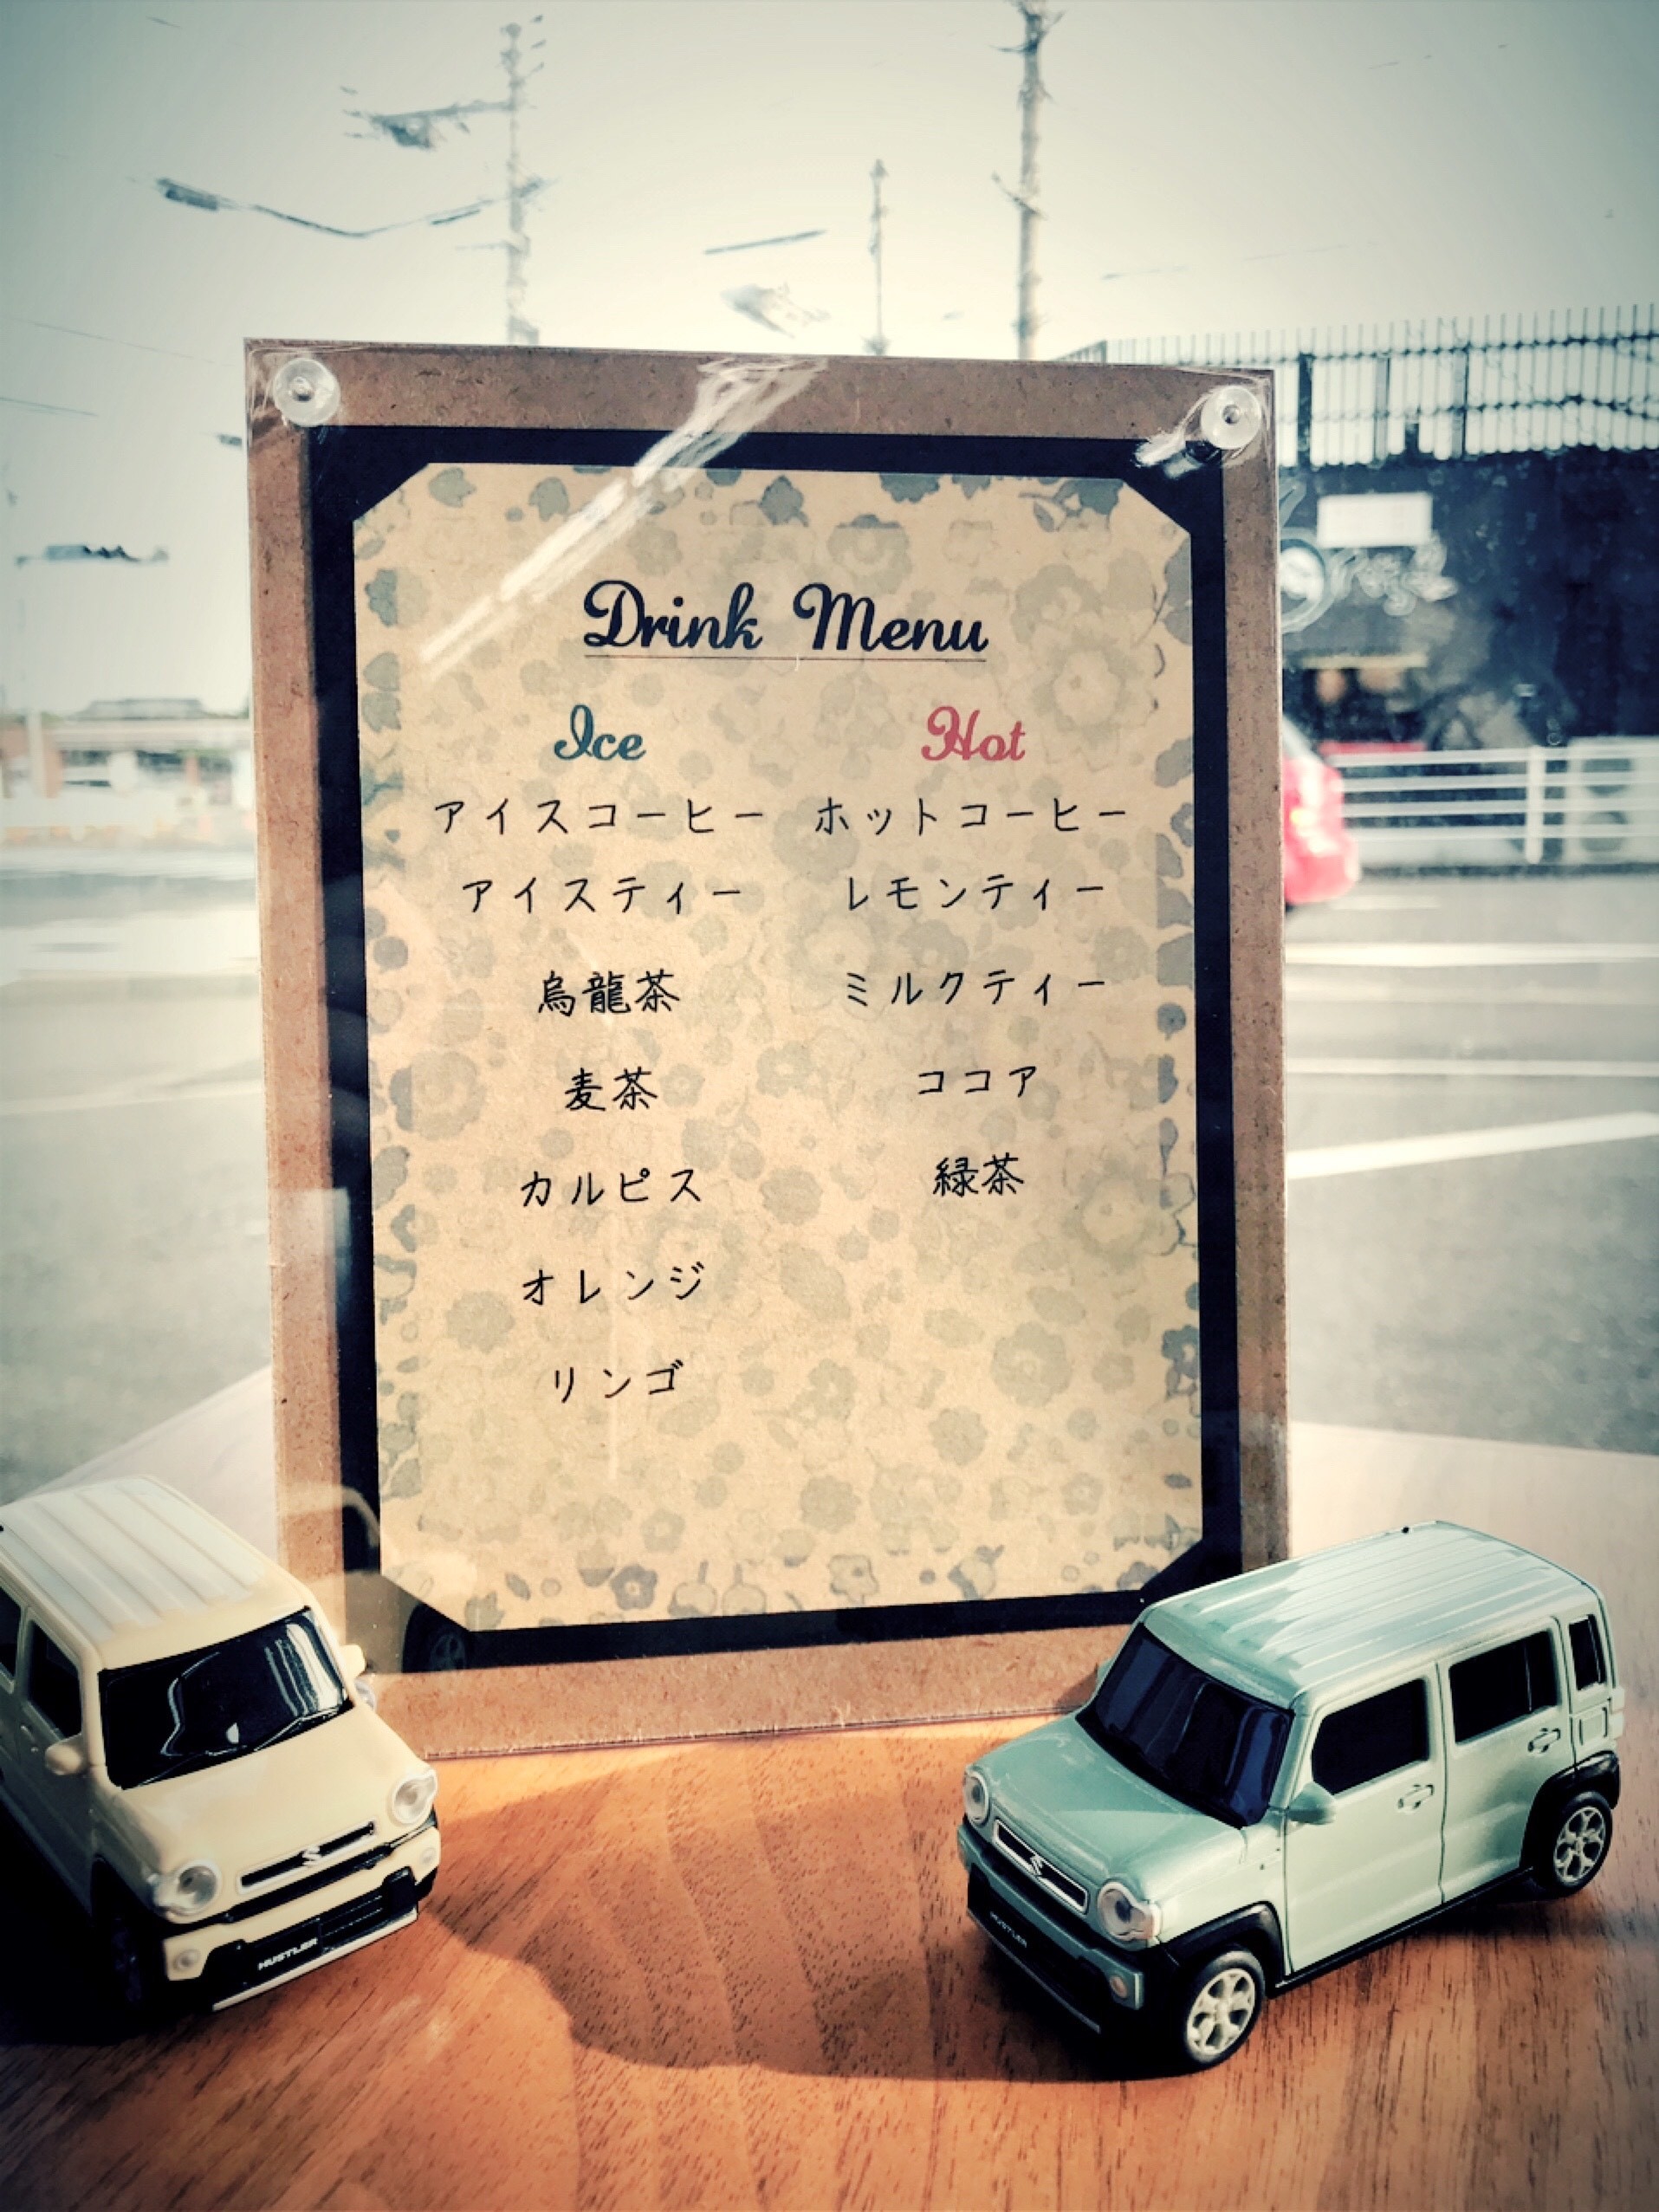 Drink Menu
Ice
アイスコーヒー
アイスティー
烏龍茶
麦茶
カルピス
オレンジ
リンゴ
Hot
ホットコーヒー
レモンティー
ミルクティー
ココア
緑茶
HUSTLER
HUSTLER